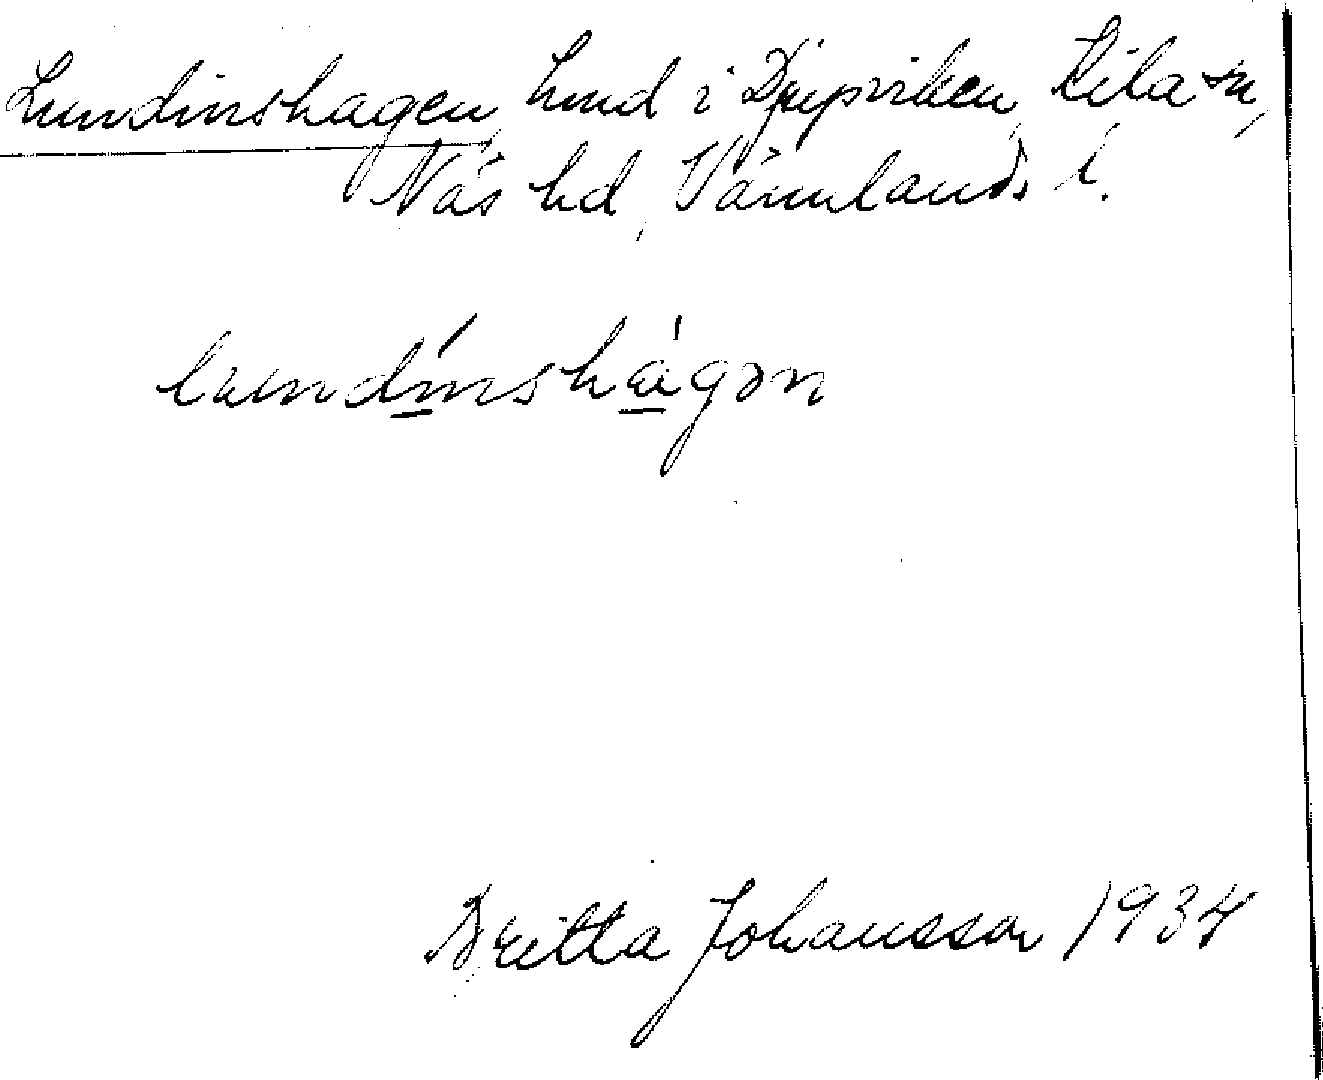 Lundinshagen, lund i Djupviken, Kila sn,
Näs hd, Värmlands l.
lundínshágən
Britta Johansson 1934